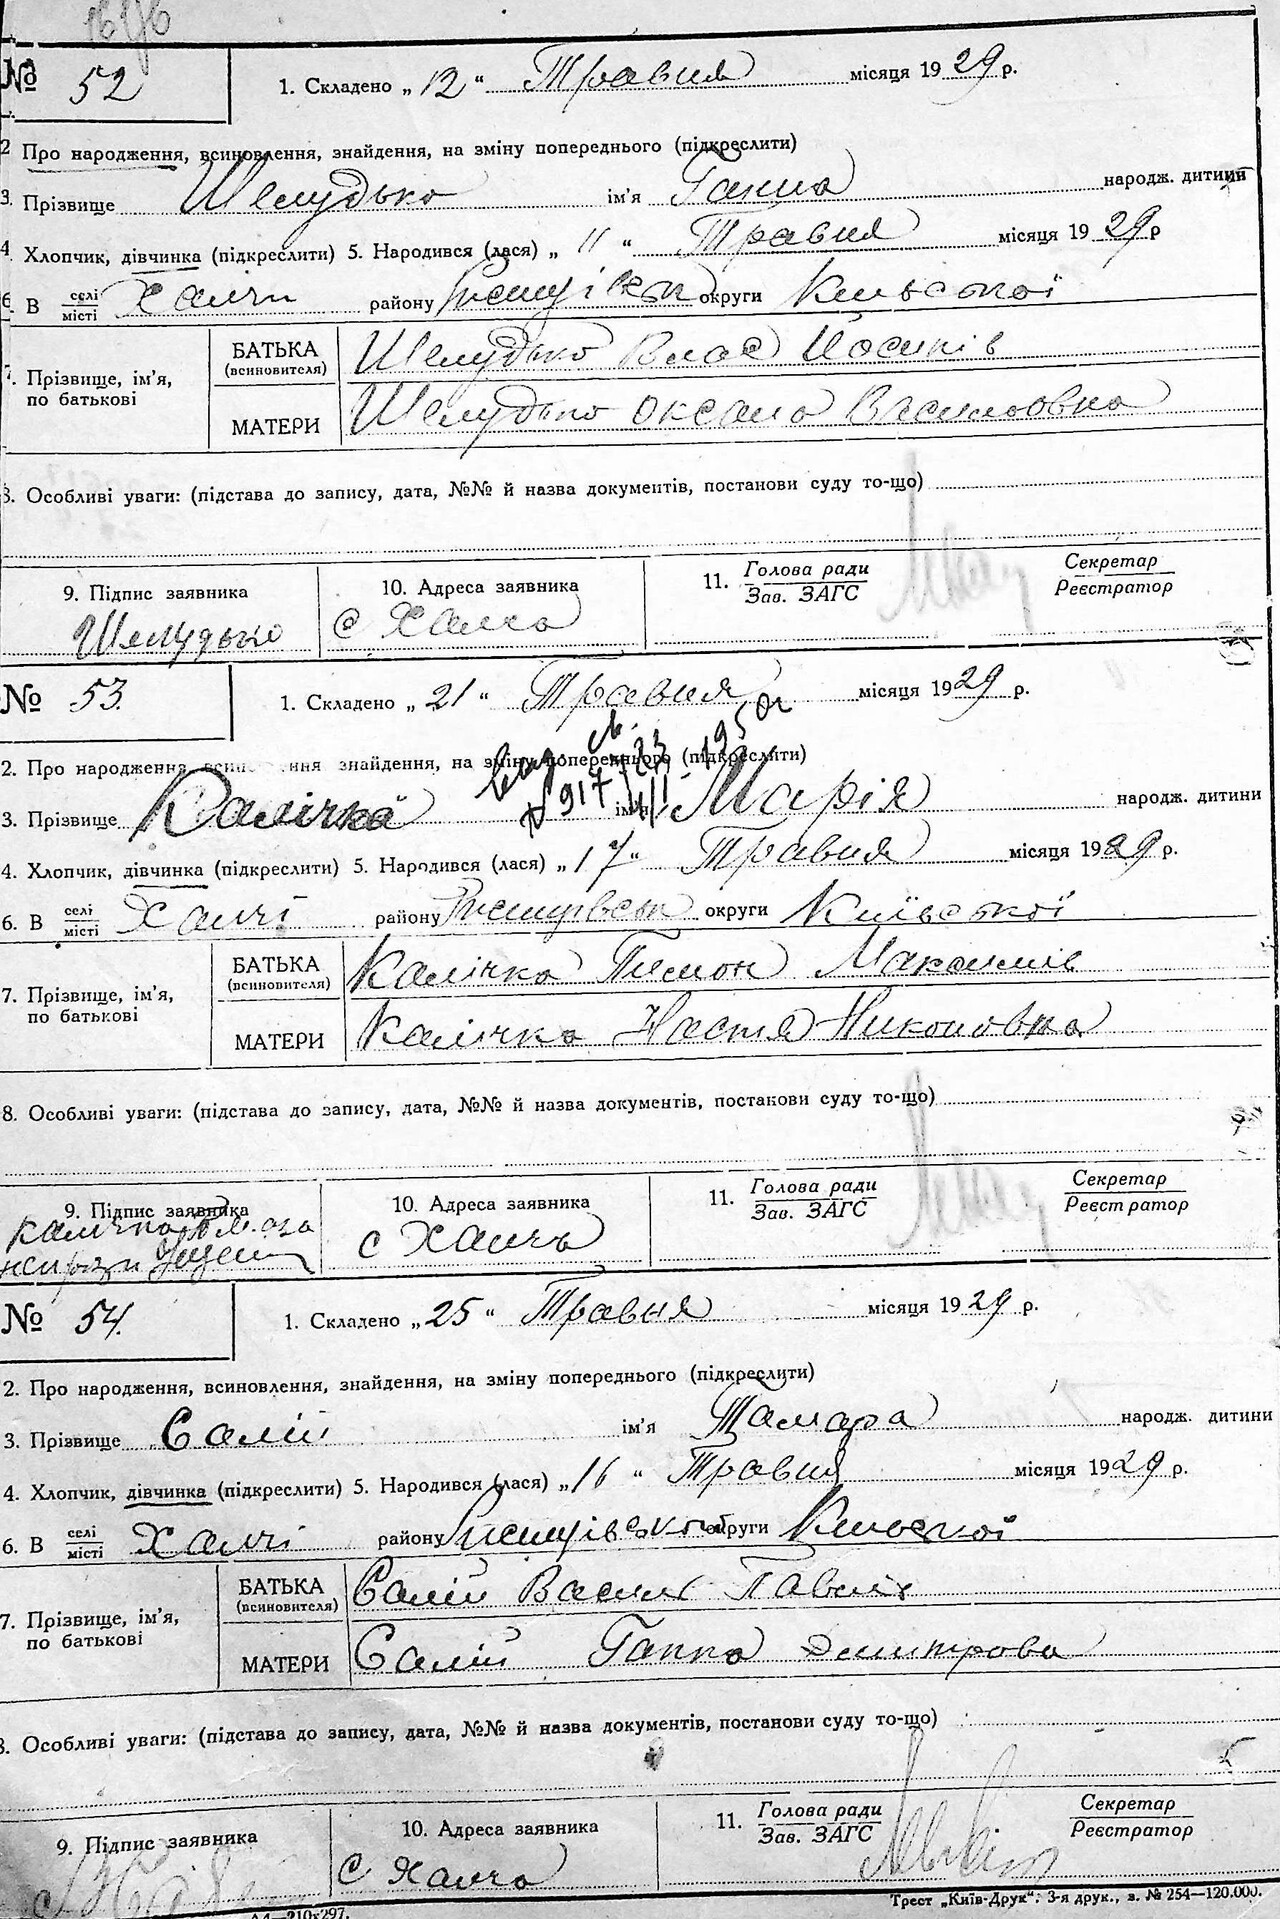 № 52
1. Складено „12“ Травня місяця 1929 р.
2 Про народження, всиновлення, знайдення, на зміну попереднього (підкреслити)
3. Прізвище Шелудько ім'я Ганна народж. дитини
4 Хлопчик, дівчинка (підкреслити) 5. Народився (лася) „11“ Травня місяця 1929 р
6. В селі місті Халчи району округи Киівської
7. Прізвище, ім'я, по батькові
БАТЬКА (всиновителя) Шелудько Влас Йосипів
МАТЕРИ Шелудько Оксана Василовна
8. Особливі уваги: (підстава до запису, дата, №№ й назва документів, постанови суду то-що)
9. Підпис заявника 10. Адреса заявника 11. Голова ради Зав. ЗАГС Секретар Реєстратор
Шелудько с Халча
№ 53.
1. Складено „21“ Травня місяця 1929 р.
2. Про народження знайдення, на зміну попереднього (підкреслити)
№ 917 1950г
3. Прізвище Калічка ім'я Марія народж. дитини
4. Хлопчик, дівчинка (підкреслити) 5. Народився (лася) „17“ Травня місяця 1929 р.
6. В селі місті Халчі району округи Київської
7. Прізвище, ім'я, по батькові
БАТЬКА (всиновителя) Калічка Пимон Максимів
МАТЕРИ Калічка Настя Никоновна
8. Особливі уваги: (підстава до запису, дата, №№ й назва документів, постанови суду то-що)
9. Підпис заявника 10. Адреса заявника 11. Голова ради Зав. ЗАГС Секретар Реєстратор
Калічка с Халчь
№ 54.
1. Складено „25“ Травня місяця 1929 р.
2. Про народження, всиновлення, знайдення, на зміну попереднього (підкреслити)
3. Прізвище Салій ім'я Тамара народж. дитини
4. Хлопчик, дівчинка (підкреслити) 5. Народився (лася) „16“ Травня місяця 1929 р.
6. В селі місті Халчі району округи Киівської
7. Прізвище, ім'я, по батькові
БАТЬКА (всиновителя) Салій Василь Павлів
МАТЕРИ Салій Гапка Дмитрова
8. Особливі уваги: (підстава до запису, дата, №№ й назва документів, постанови суду то-що)
9. Підпис заявника 10. Адреса заявника 11. Голова ради Зав. ЗАГС Секретар Реєстратор
с Халча
А4—210х297. Трест „Київ-Друк“: 3-я друк., з. № 254—120.000.